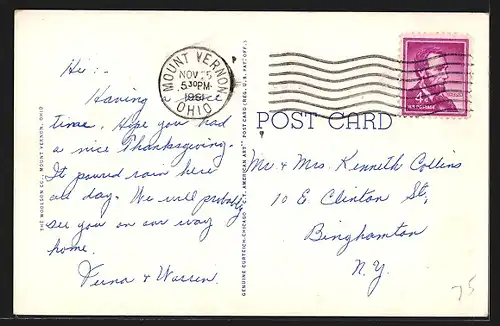 Hi:-
Having nice
time. Hope you had
a nice Thanksgiving.
It poured rain here
all day. We will probably
see you on our way
home.
Verna & Warren.
THE WOOLSON CO., MOUNT VERNON, OHIO
MOUNT VERNON
NOV 25
5 30 PM
1961
OHIO
GENUINE CURTEICH-CHICAGO "C.T. AMERICAN ART" POST CARD (REG. U.S. PAT. OFF.)
POST CARD
Mr. & Mrs. Kenneth Collins
10 E. Clinton St,
Binghamton
N.Y.
75
4¢